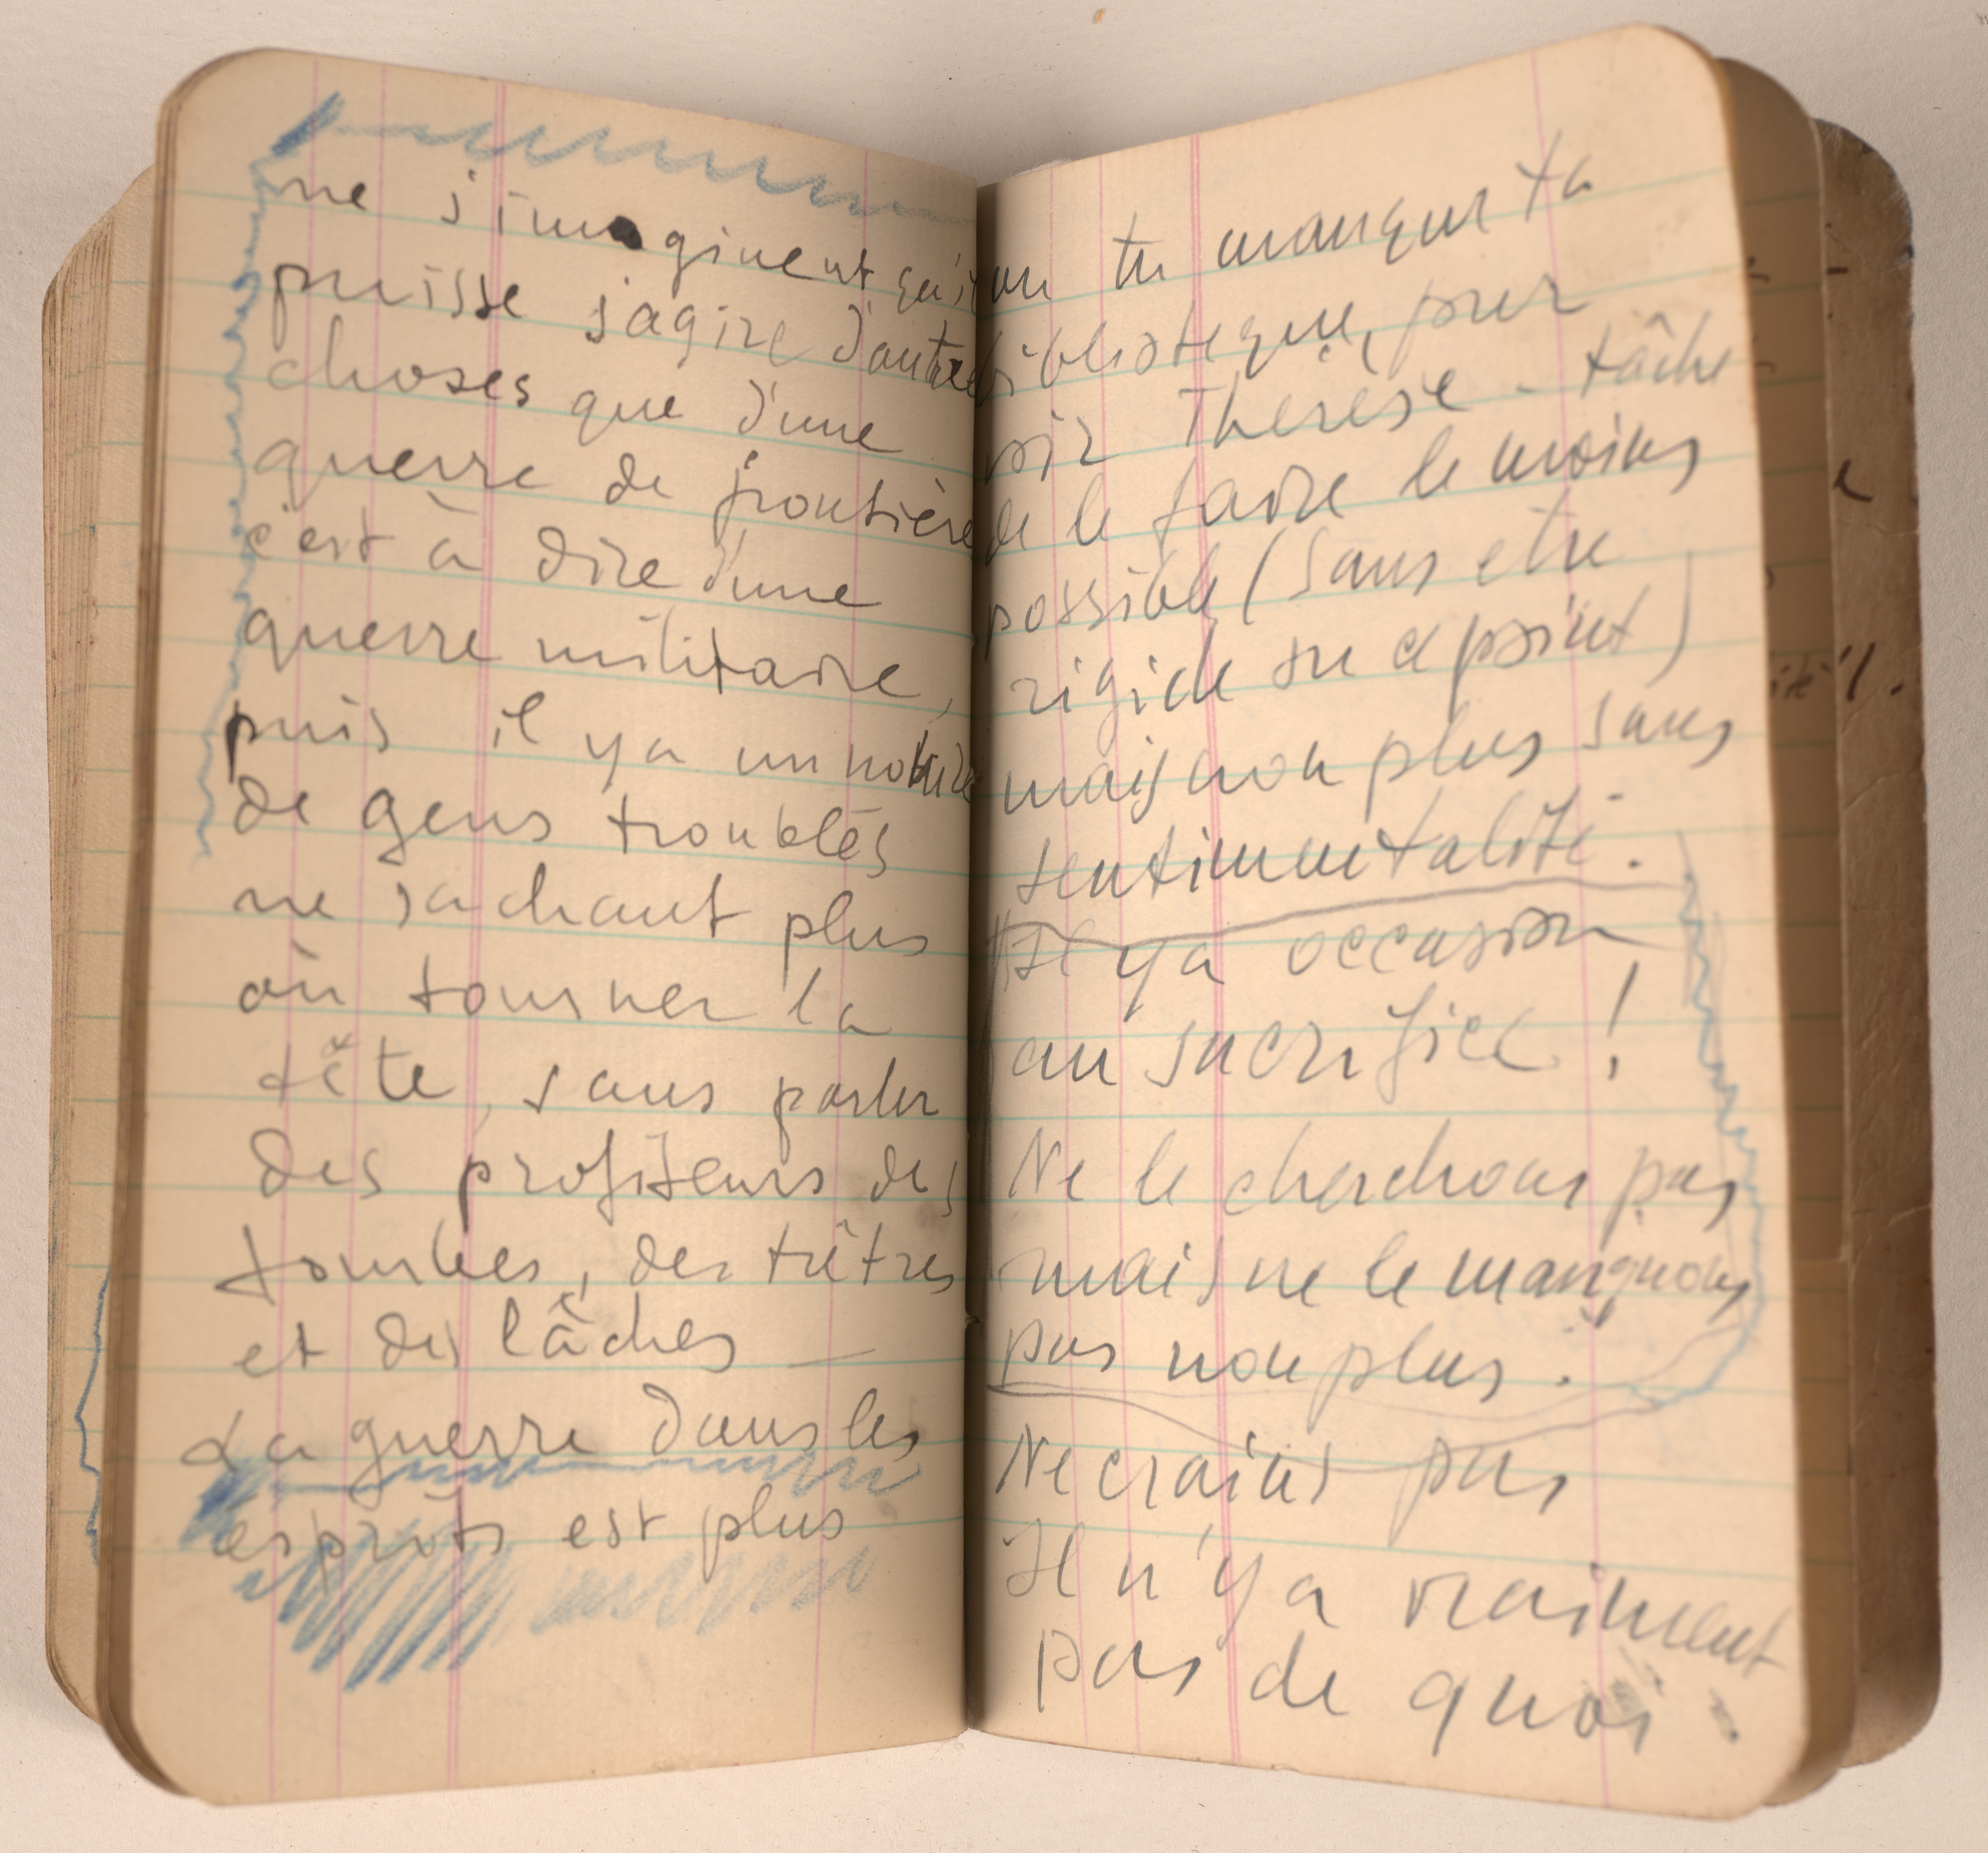 ne s'imaginent qu'i
puisse s'agire d'autre
choses que d'une
guerre de frontière
c'est à dire d'une
guerre militaire,
puis il y a un nombre
de gens troublés
ne sachant plus
où tourner la
tête, sans parler
des profiteurs des
tombes, des traîtres
et des lâches —
La guerre dans les
esprits est plus
tu manques ta
bibliotèque, pour
voir Thérèse - tâche
de le faire le moins
possible (sans etre
rigide sur ce point)
mais non plus sans
sentimentalité.
Il y a occasion
au sacrifice !
Ne le cherchons pas
mais ne le manquons
pas non plus.
Ne crains pas
Il n'y a vraiment
pas de quoi